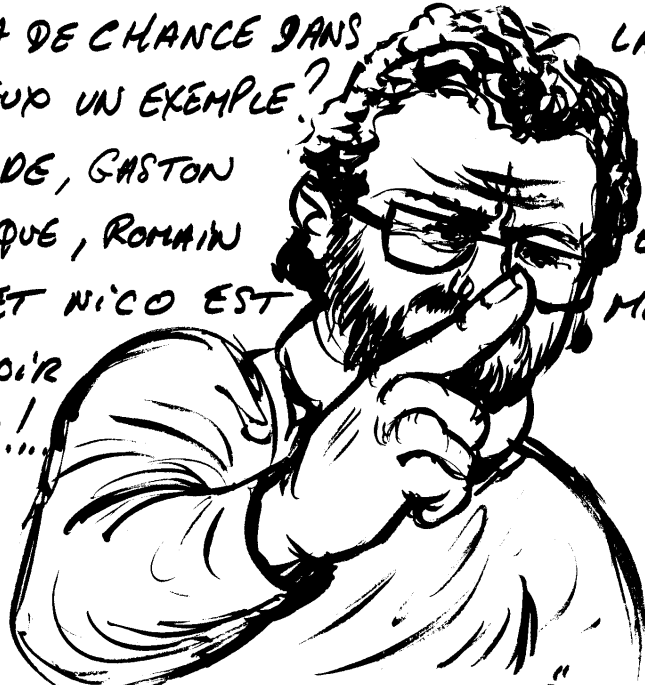 DE CHANCE DANS LA
UN EXEMPLE?
DE, GASTON
QUE, ROMAIN
ET NICO EST
OIR
!...